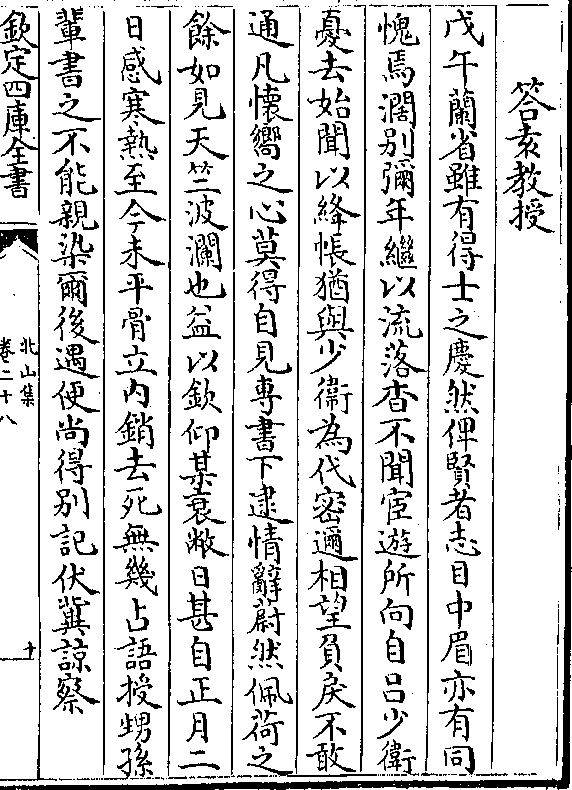 答袁教授
戊午蘭省雖有得士之慶然俾賢者志目中眉亦有同
愧焉濶别彌年繼以流落杳不聞宦遊所向自吕少衛
憂去始聞以絳帳猶與少衛為代密邇相望負戾不敢
通凡懷嚮之心莫得自見專書下逮情辭蔚然佩荷之
餘如見天竺波瀾也益以欽仰某衰敝日甚自正月二
日感寒熱至今未平骨立内銷去死無幾占語授甥孫
輩書之不能親染爾後遇便尚得别記伏冀諒察
欽定四庫全書
北山集
卷二十八
十